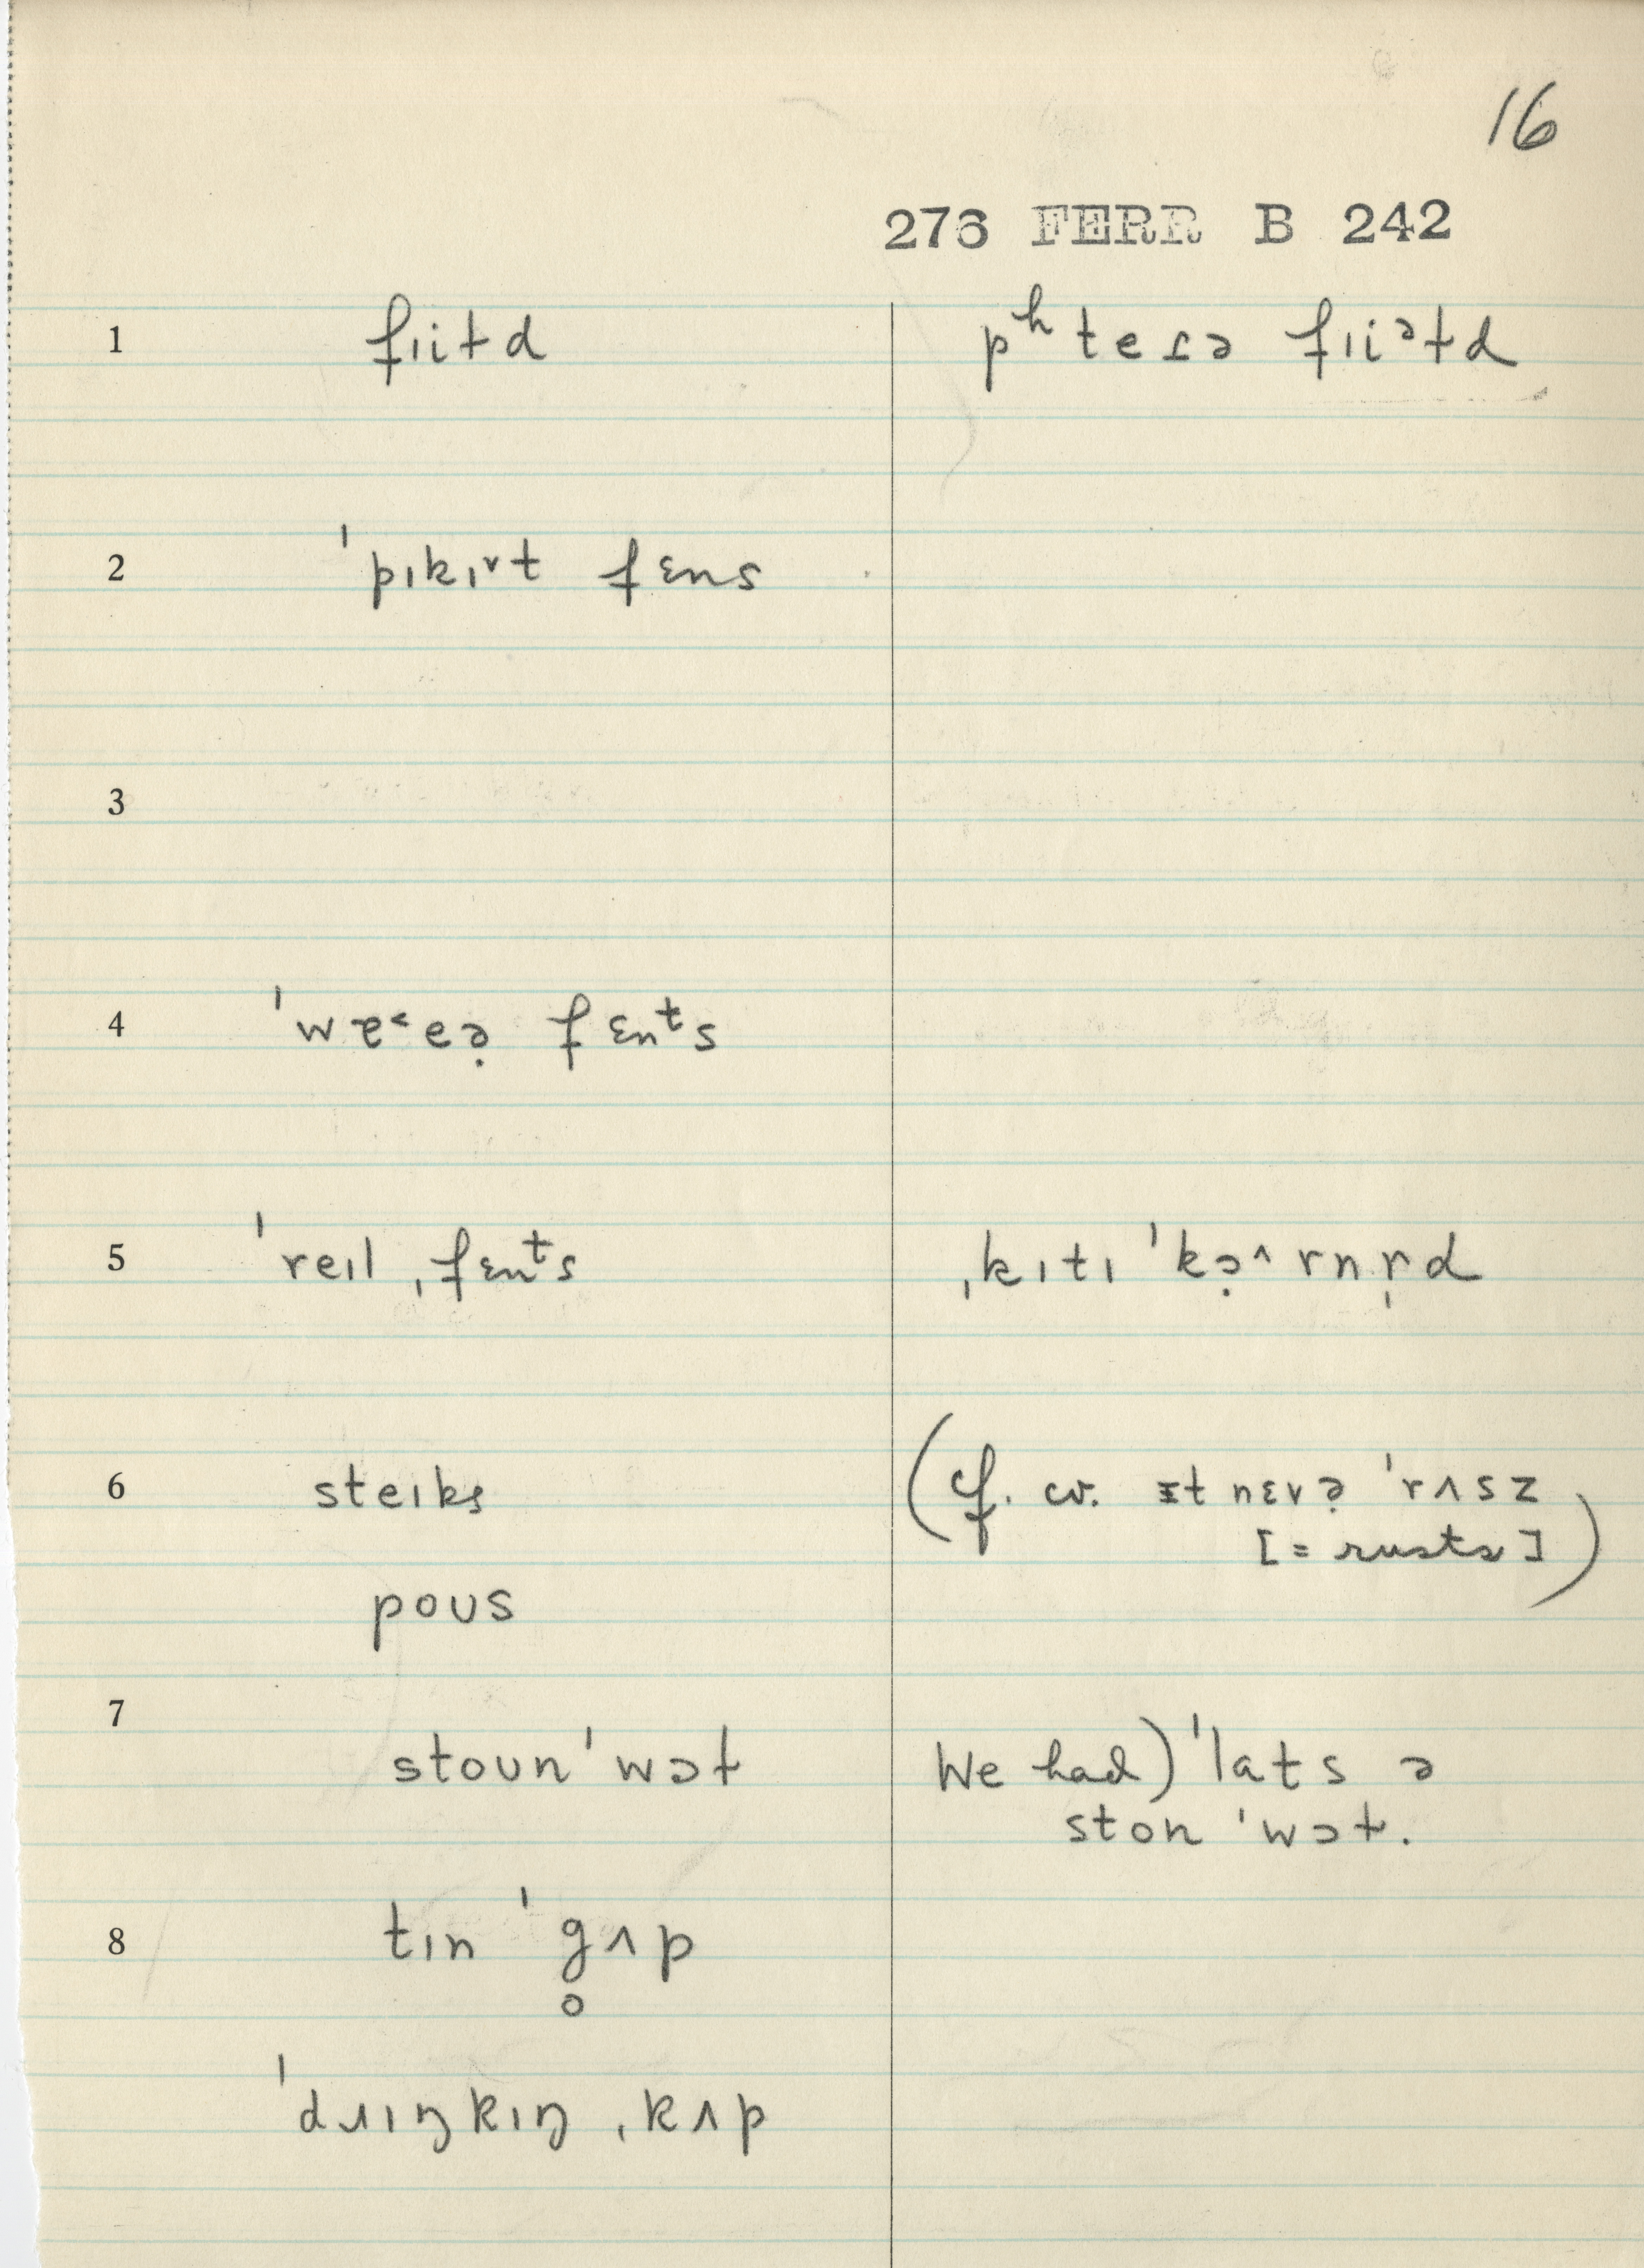 16
276 FERR B 242
1 fɪiɫd pʰteɾə fɪiᵊɫd
2 ˈpɪkɪ˅t fɛns
3
4 ˈwɐ˂eə̣ fɛnᵗs
5 ˈreɪl ˌfɛnᵗs ˌkɪtɪ ˈkə̣˄rnr̩d
6 steɪks (cf. cv. ɪt nɛvə̣ ˈrʌsz
[= rusts])
poʊs
7
stoʊnˈwɔɫ We had) ˈlats ə
ston ˈwɔɫ.
8 tɪn ˈg̥ʌp
ˈdɹɪŋkɪŋ ˌkʌp